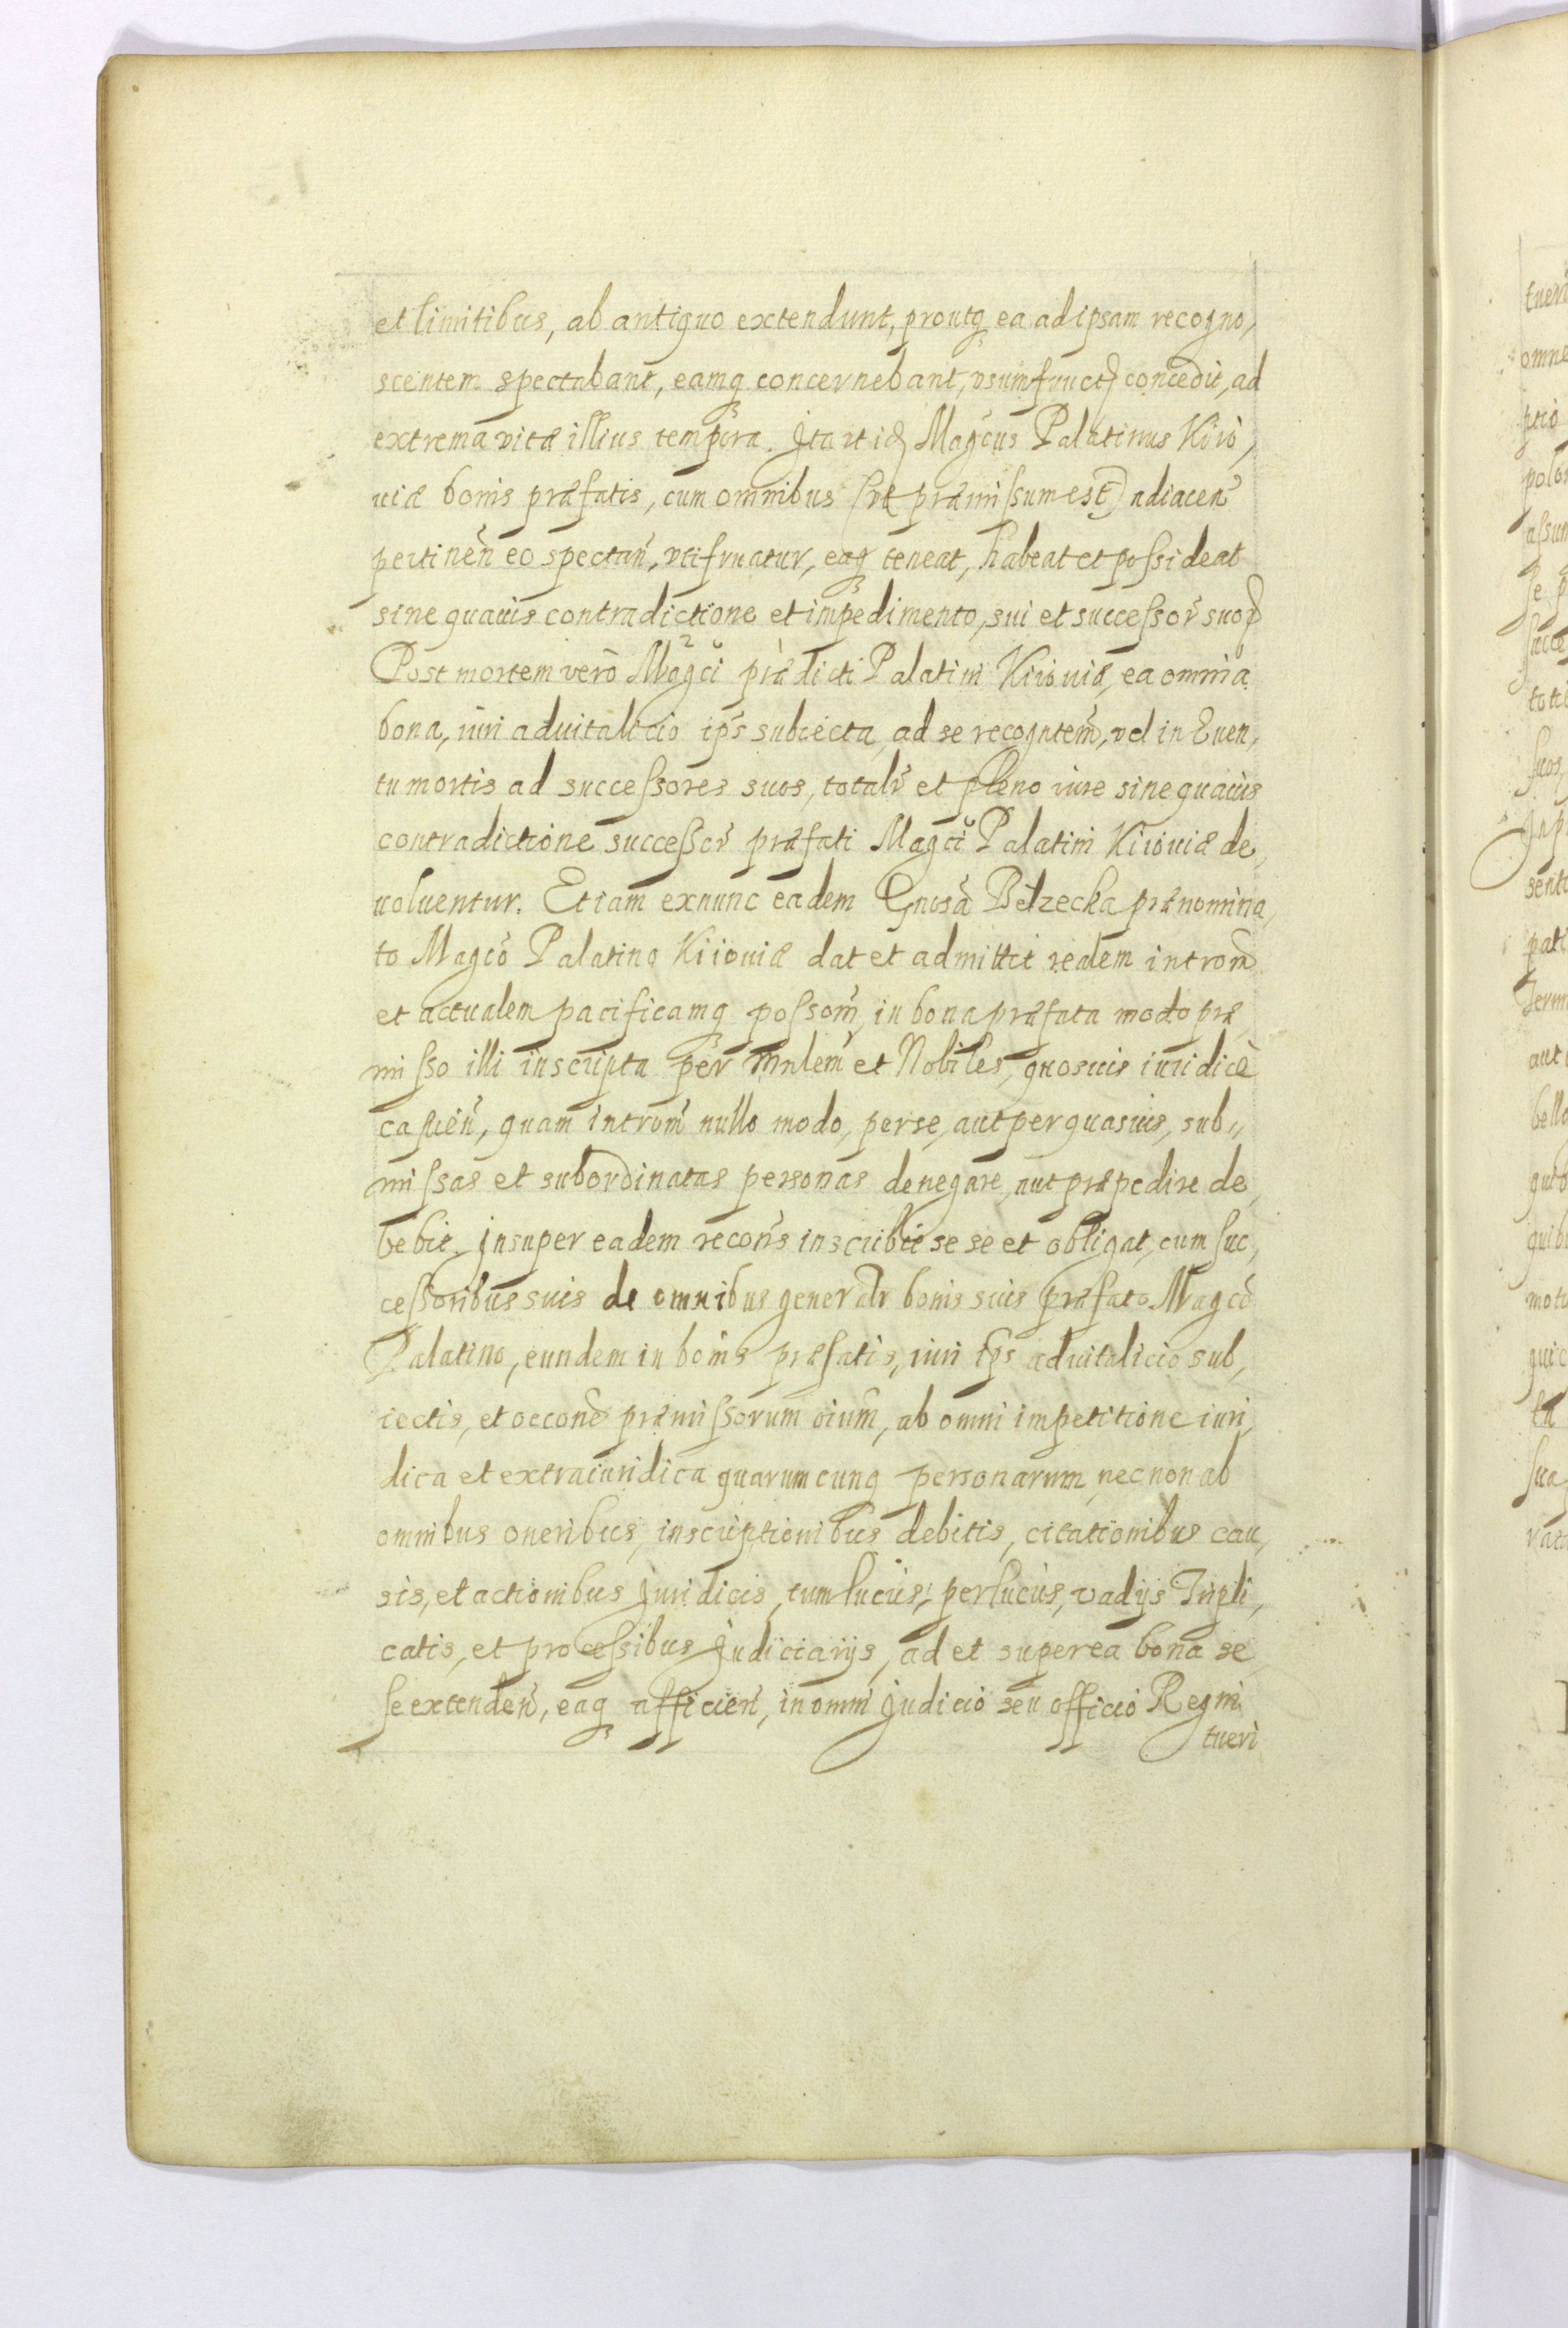 et limitibus, ab antiquo extendunt, proutq ea ad ipsam recogno,
scentem spectabant, eamq concernebant, vsumfructũ concedit, ad
extrema vitæ illius tempora. Ita vt idẽ Magcus Palatinus Kiio,
uiæ bonis præfatis, cum omnibus (vt præmissum est) adiaceñ
pertineñ eo spectañ, vtifruatur, eaq teneat, habeat et possideat
sine quauis contradictione et impedimento, sui et successoř suoꝝ
Post mortem vero Magci prædicti Palatini Kiiouiæ, ea omnia
bona, iuri aduitalicio ips subiecta, ad se recogntem, vel in Euen,
tu mortis ad successores suos, totalr et pleno iure sine quauis
contradictione successoř præfati Magci Palatini Kiiouiæ de,
voluentur. Etiam exnunc eadem Gnosa Belzecka prænomina,
to Magco Palatino Kiiouiæ dat et admittit realem introm
et actualem pacificamq possom, in bona præfata modo præ,
misso illi inscripta per Mnlem et Nobiles, quosuis iuridicè
capien, quam introm nullo modo, per se, aut per quasuis, sub„
missas et subordinatas personas denegare, aut præpedire de,
bebit. Insuper eadem recons inscribit se se et obligat, cum suc,
cessoribus suis de omnibus generalr bonis suis præfato Magco
Palatino, eundem in bonis præfatis, iuri ips aduitalicio sub,
iectis, et oecone præmissorum oium, ab omni impetitione iuri,
dica et extraiuridica quarumcunq personarum, necnon ab
omnibus oneribus, inscriptionibus debitis, citationibus cau,
sis, et actionibus Juridicis, tum lucris, perlucris, vadijs Tripli,
catis, et processibus Judiciarijs, ad et super ea bona se,
se extendeñ, eaq afficieñ, in omni Judicio seu officio Regni
tueri